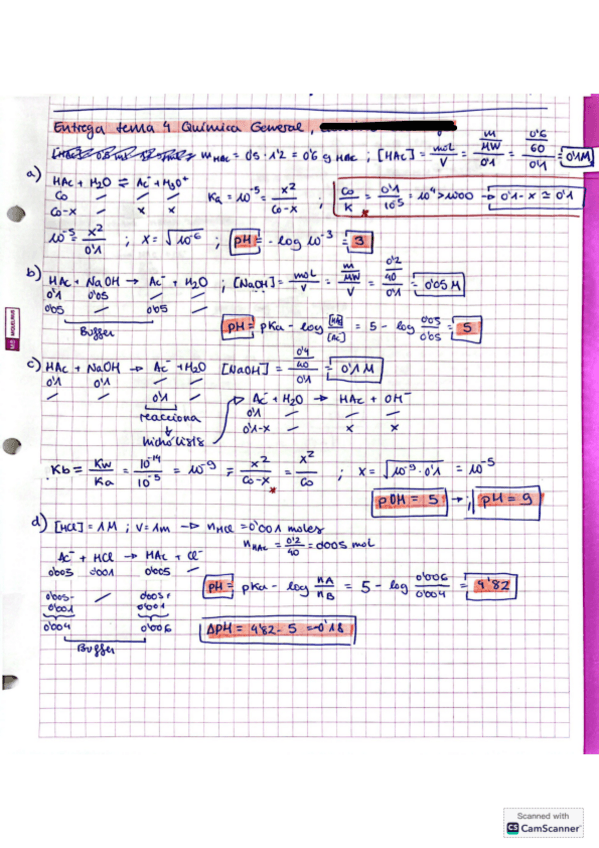 Entrega tema 4 Química General,
m HAc = 0'5 · 1'2 = 0'6 g HAc ; [HAc] = mol/V = (m/MW)/0'1 = (0'6/60)/0'1 = 0'1M
a) HAc + H2O ⇌ Ac⁻ + H3O⁺
Co — — —
Co-x — x x
Ka = 10⁻⁵ = x²/(Co-x) ; Co/K = 0'1/10⁻⁵ = 10⁴ > 1000 → 0'1 - x ≃ 0'1
10⁻⁵ = x²/0'1 ; x = √10⁻⁶ ; pH = - log 10⁻³ = 3
b) HAc + NaOH → Ac⁻ + H2O ; [NaOH] = mol/V = (m/MW)/V = (0'2/40)/0'1 = 0'05 M
0'1 0'05 — —
0'05 — 0'05 —
Buffer
pH = pKa - log [HA]/[Ac⁻] = 5 - log 0'05/0'05 = 5
c) HAc + NaOH → Ac⁻ + H2O [NaOH] = (0'4/40)/0'1 = 0'1 M
0'1 0'1 — —
— — 0'1 —
reacciona
hidrólisis
Ac⁻ + H2O → HAc + OH⁻
0'1 — — —
0'1-x — x x
Kb = Kw/Ka = 10⁻¹⁴/10⁻⁵ = 10⁻⁹ = x²/(Co-x) = x²/Co ; x = √10⁻⁹·0'1 = 10⁻⁵
pOH = 5 → ; pH = 9
d) [HCl] = 1M ; V = 1m → nHCl = 0'001 moles
nHAc = 0'2/40 = 0'005 mol
Ac⁻ + HCl → HAc + Cl⁻
0'005 0'001 0'005 —
0'005- — 0'005+
0'001 0'001
0'004 0'006
Buffer
pH = pKa - log nA/nB = 5 - log 0'006/0'004 = 4'82
ΔpH = 4'82 - 5 = -0'18
Scanned with
CS CamScanner